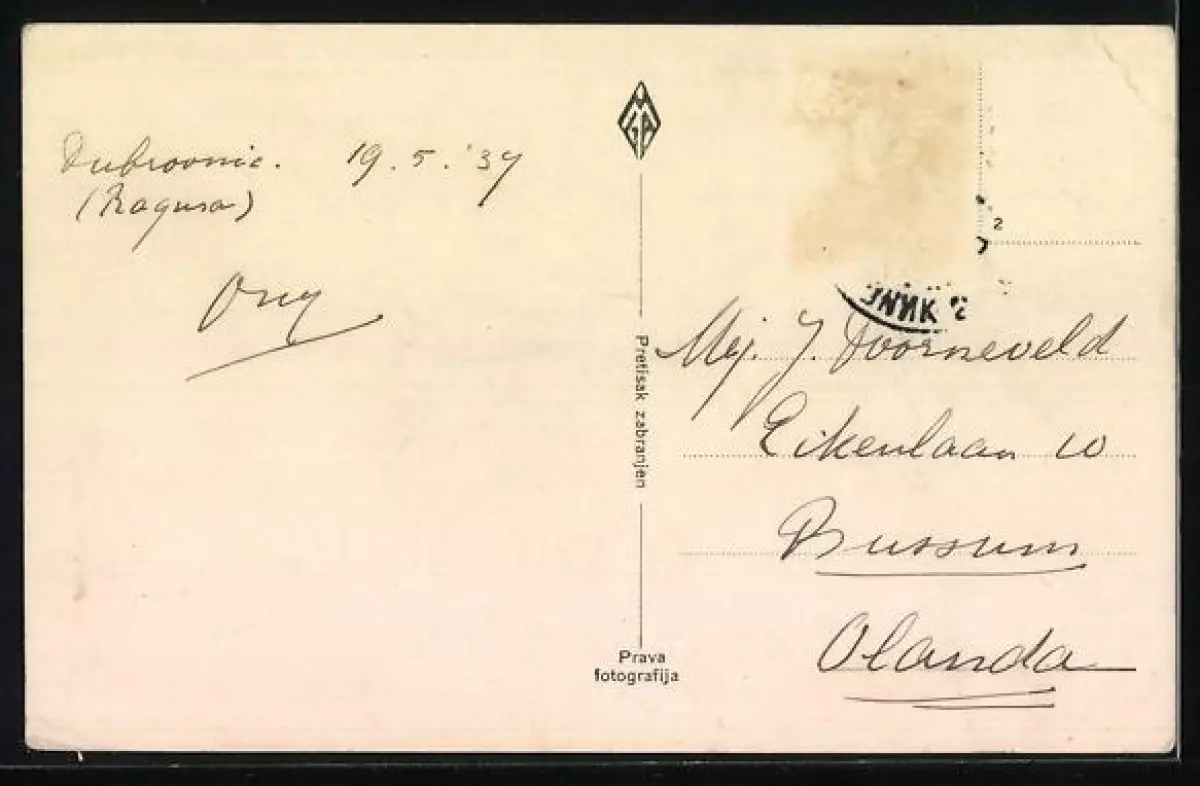 Dubrovnic. 19.5.'37
(Ragusa)
Ony
MGA
Pretisak zabranjen
Prava
fotografija
2
Mej. J. Voorneveld
Eikenlaan 10
Bussum
Olanda